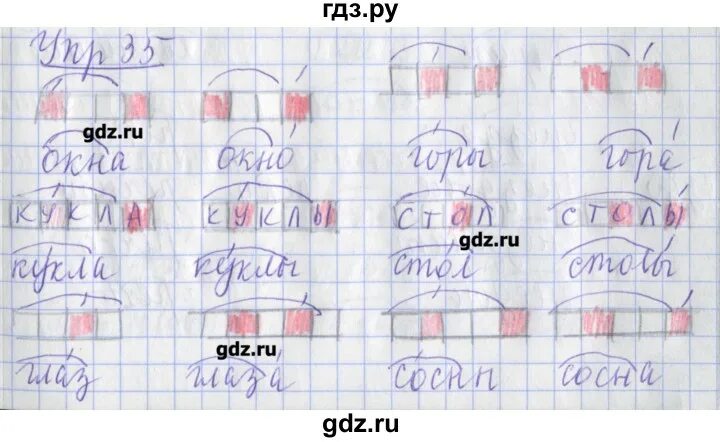 гдз.ру
Упр 35
gdz.ru
окна окно́ горы гора́
КУКЛА КУКЛЫ СТОЛ СТОЛЫ
gdz.ru
кукла куклы стол столы́
gdz.ru
глаз глаза́ сосны сосна
gdz.ru